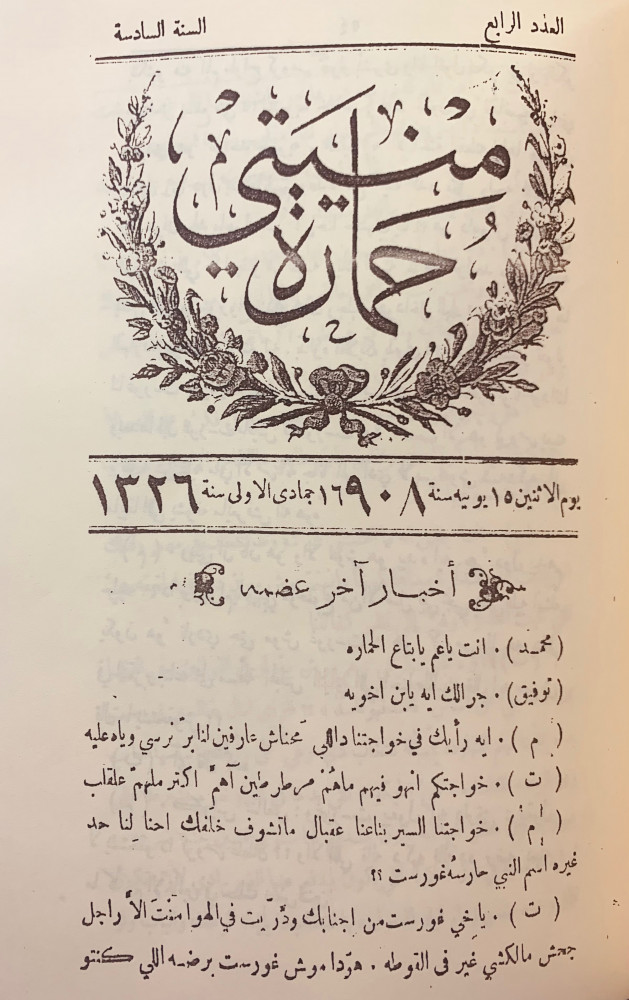 العدد الرابع
السنة السادسة
حمارة
منيتي
يوم الاثنين ١٥ يونيه سنة ١٩٠٨ ١٦ جمادى الاولى سنة ١٣٢٦
أخبار آخر عضمه
(محمد) . انت ياعم يابتاع الحماره
(توفيق) . جرالك ايه يابن اخويه
( م ) . ايه رأيك في خواجتنا داللي محناش عارفين لنا بر نرسي وياه عليه
( ت ) . خواجتكم انهو فيهم ماهم مرطرطين آهم اكتر ملهم علقلب
( م ) . خواجتنا السير بتاعنا عقبال ماتشوف خلفك احنا لنا حد
غيره اسم النبي حارسه غورست ؟؟
( ت ) . ياخي غورست من اجنابك وذريت في الهوا مفت الأ راجل
جحش مالكشي غير في القوطه . هوّدا موش غورست برضه اللي كنتو